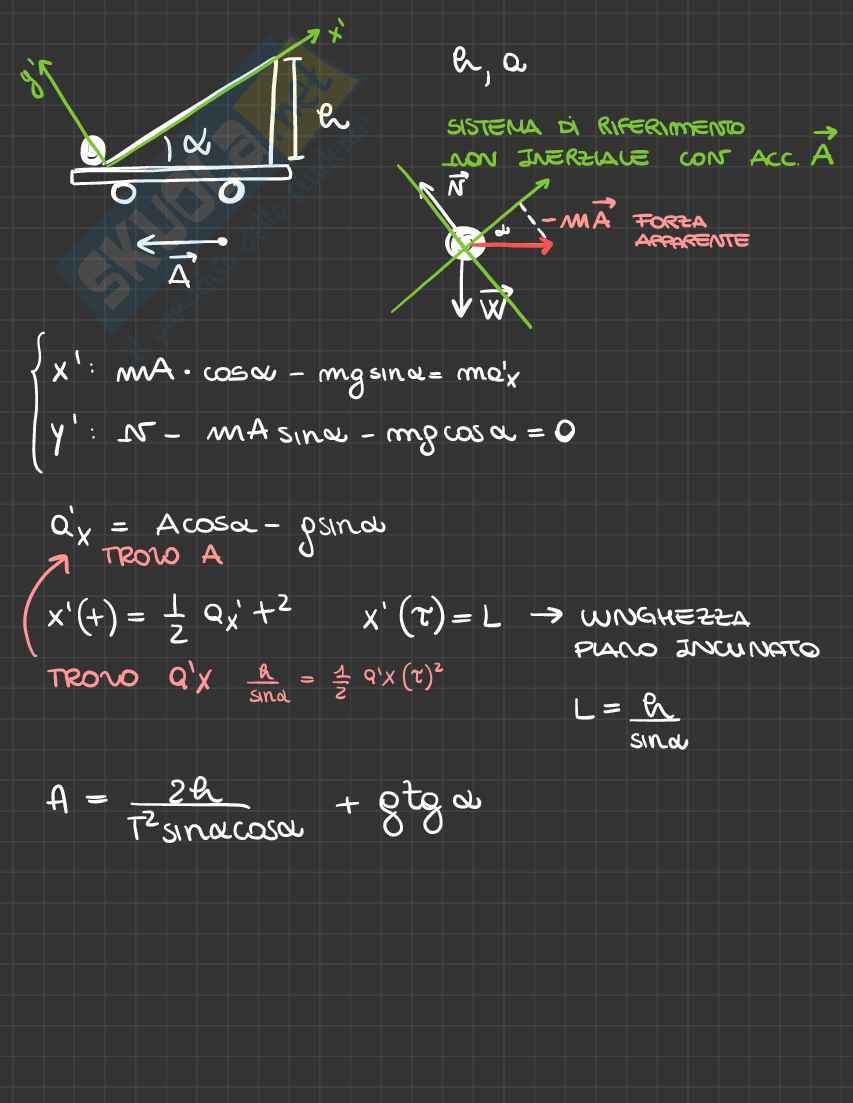 y' x'
h, a
α h
SISTEMA DI RIFERIMENTO
NON INERZIALE CON ACC. A⃗
N⃗
α -mA⃗ FORZA
APPARENTE
A⃗
W⃗
x': mA · cosα - mg sinα = ma'x
y': N - mA sinα - mg cosα = 0
a'x = A cosα - g sinα
TROVO A
x'(t) = 1/2 ax' t² x'(τ) = L → LUNGHEZZA
PIANO INCLINATO
TROVO a'x h/sinα = 1/2 a'x (τ)²
L = h/sinα
A = 2h/T² sinα cosα + g tg α
SKUOLA.net